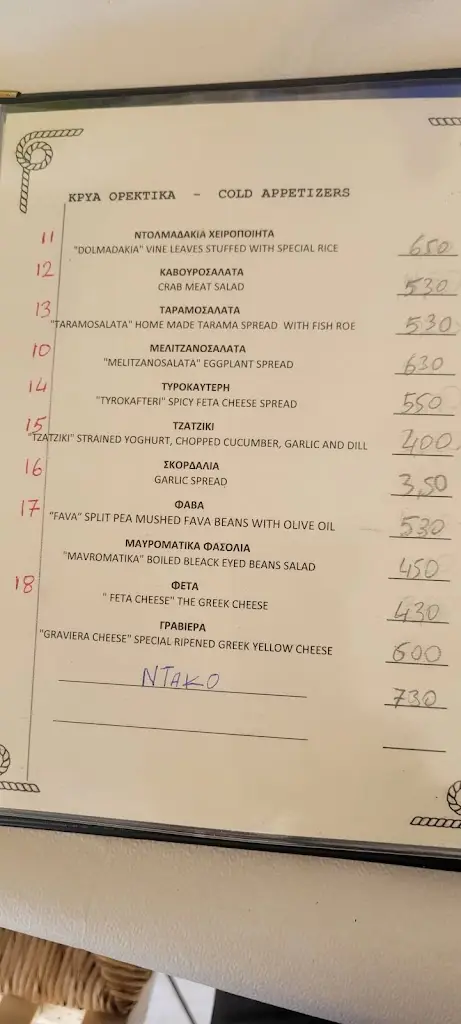 ΚΡΥΑ ΟΡΕΚΤΙΚΑ - COLD APPETIZERS
11 ΝΤΟΛΜΑΔΑΚΙΑ ΧΕΙΡΟΠΟΙΗΤΑ
"DOLMADAKIA" VINE LEAVES STUFFED WITH SPECIAL RICE 650
12 ΚΑΒΟΥΡΟΣΑΛΑΤΑ
CRAB MEAT SALAD 530
13 ΤΑΡΑΜΟΣΑΛΑΤΑ
"TARAMOSALATA" HOME MADE TARAMA SPREAD WITH FISH ROE 530
10 ΜΕΛΙΤΖΑΝΟΣΑΛΑΤΑ
"MELITZANOSALATA" EGGPLANT SPREAD 630
14 ΤΥΡΟΚΑΥΤΕΡΗ
"TYROKAFTERI" SPICY FETA CHEESE SPREAD 550
15 ΤΖΑΤΖΙΚΙ
"TZATZIKI" STRAINED YOGHURT, CHOPPED CUCUMBER, GARLIC AND DILL 400
16 ΣΚΟΡΔΑΛΙΑ
GARLIC SPREAD 3,50
17 ΦΑΒΑ
"FAVA" SPLIT PEA MUSHED FAVA BEANS WITH OLIVE OIL 530
ΜΑΥΡΟΜΑΤΙΚΑ ΦΑΣΟΛΙΑ
"MAVROMATIKA" BOILED BLEACK EYED BEANS SALAD 450
18 ΦΕΤΑ
" FETA CHEESE" THE GREEK CHEESE 430
ΓΡΑΒΙΕΡΑ
"GRAVIERA CHEESE" SPECIAL RIPENED GREEK YELLOW CHEESE 600
ΝΤΑΚΟ 730